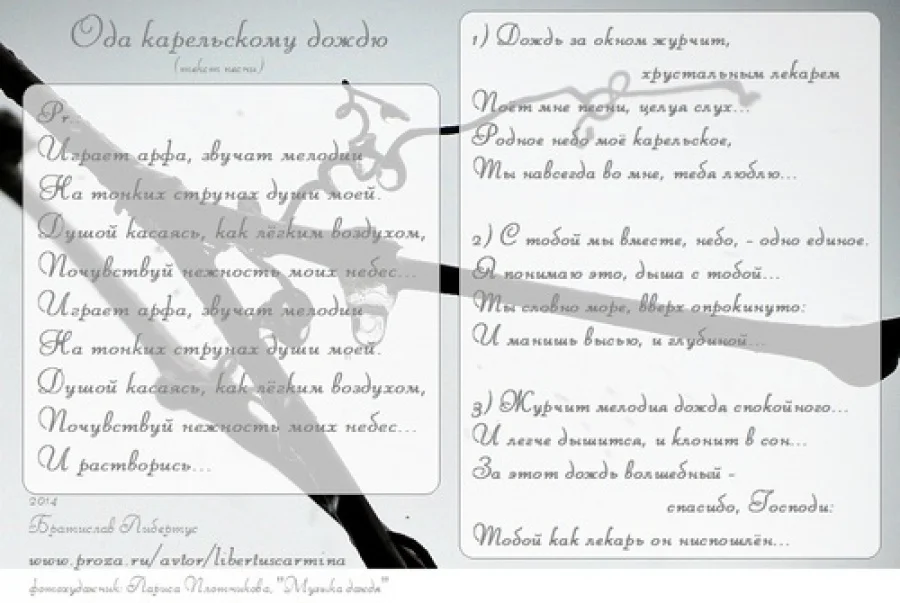 Ода карельскому дождю
(текст песни)
Pr...
Играет арфа, звучат мелодии
На тонких струнах души моей.
Душой касаясь, как лёгким воздухом,
Почувствуй нежность моих небес...
Играет арфа, звучат мелодии
На тонких струнах души моей.
Душой касаясь, как лёгким воздухом,
Почувствуй нежность моих небес...
И растворись...
2014
Братислав Либертус
www.proza.ru/avtor/libertuscarmina
фотохудожник: Лариса Плотникова, "Музыка дождя"
1) Дождь за окном журчит,
хрустальным лекарем
Поёт мне песни, целуя слух...
Родное небо моё карельское,
Ты навсегда во мне, тебя люблю...
2) С тобой мы вместе, небо, - одно единое.
Я понимаю это, дыша с тобой...
Ты словно море, вверх опрокинуто:
И манишь высью, и глубиной...
3) Журчит мелодия дождя спокойного...
И легче дышится, и клонит в сон...
За этот дождь волшебный -
спасибо, Господи:
Тобой как лекарь он ниспошлён...